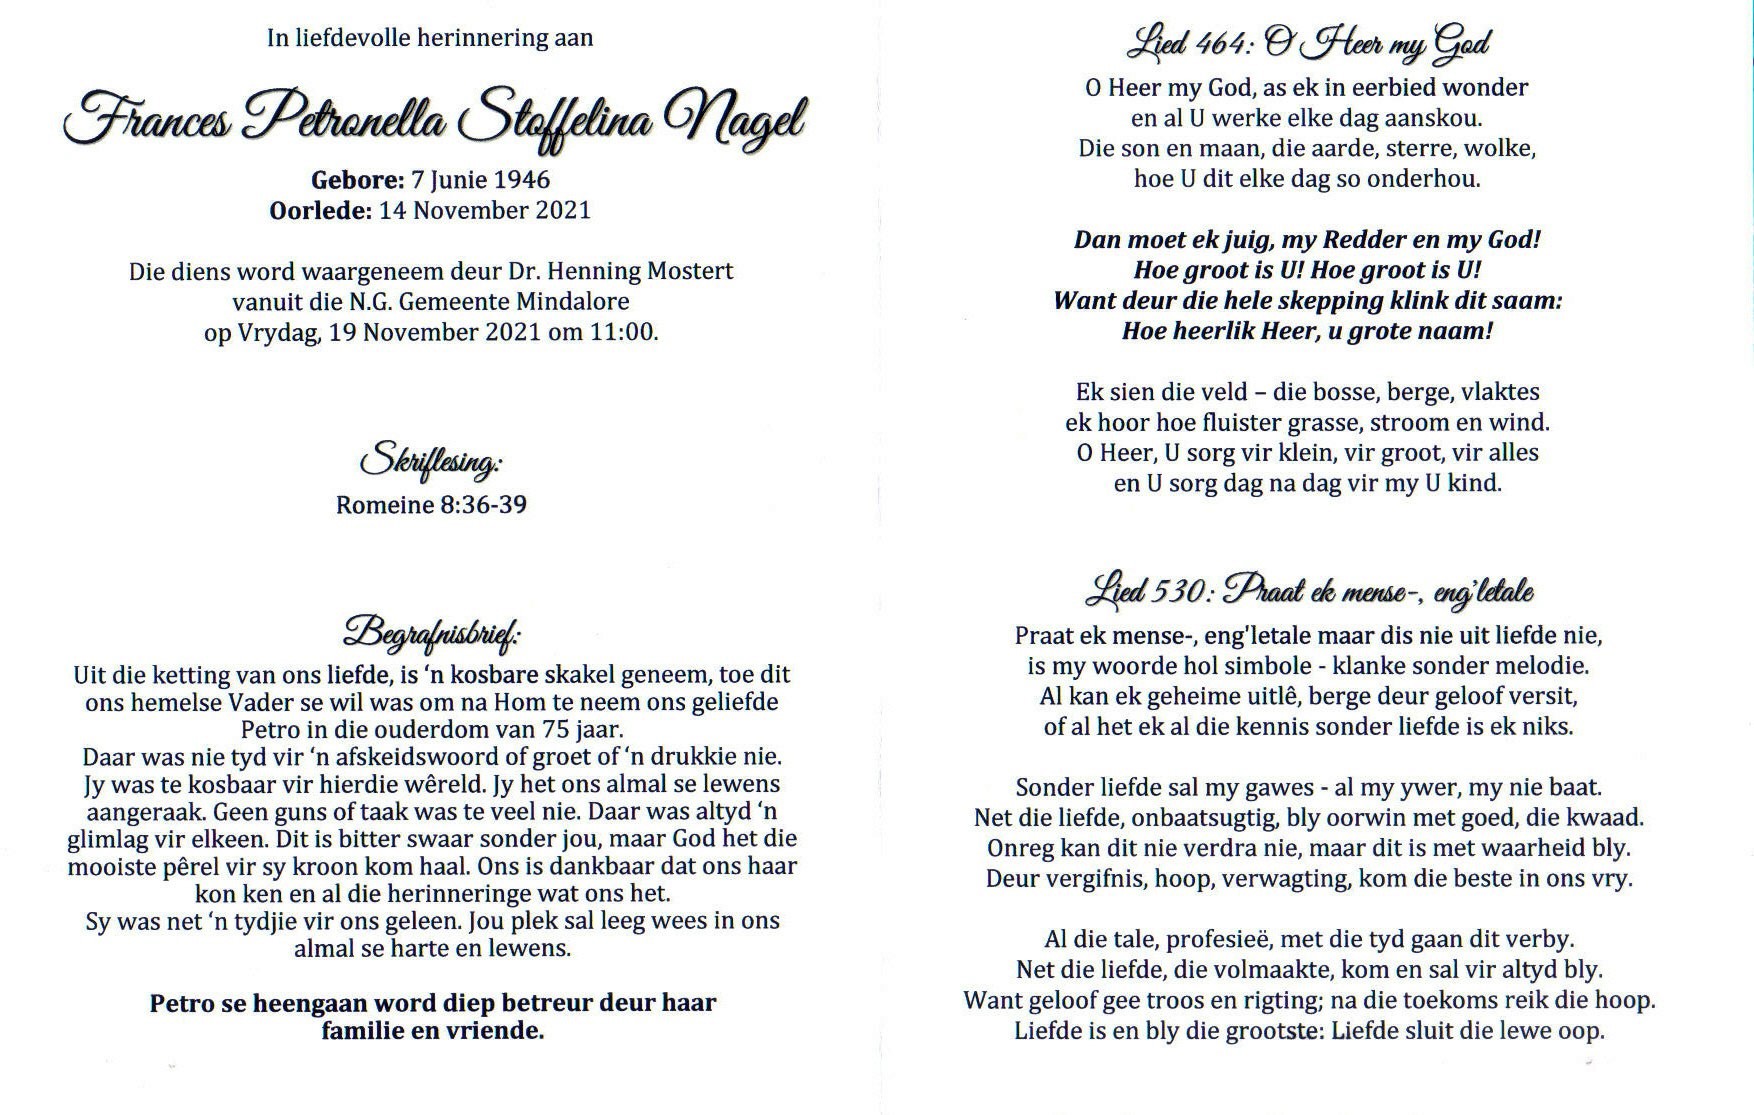 In liefdevolle herinnering aan
Frances Petronella Stoffelina Nagel
Gebore: 7 Junie 1946
Oorlede: 14 November 2021
Die diens word waargeneem deur Dr. Henning Mostert
vanuit die N.G. Gemeente Mindalore
op Vrydag, 19 November 2021 om 11:00.
Skriflesing:
Romeine 8:36-39
Begrafnisbrief:
Uit die ketting van ons liefde, is ‘n kosbare skakel geneem, toe dit
ons hemelse Vader se wil was om na Hom te neem ons geliefde
Petro in die ouderdom van 75 jaar.
Daar was nie tyd vir ‘n afskeidswoord of groet of ‘n drukkie nie.
Jy was te kosbaar vir hierdie wêreld. Jy het ons almal se lewens
aangeraak. Geen guns of taak was te veel nie. Daar was altyd ‘n
glimlag vir elkeen. Dit is bitter swaar sonder jou, maar God het die
mooiste pêrel vir sy kroon kom haal. Ons is dankbaar dat ons haar
kon ken en al die herinneringe wat ons het.
Sy was net ‘n tydjie vir ons geleen. Jou plek sal leeg wees in ons
almal se harte en lewens.
Petro se heengaan word diep betreur deur haar
familie en vriende.
Lied 464: O Heer my God
O Heer my God, as ek in eerbied wonder
en al U werke elke dag aanskou.
Die son en maan, die aarde, sterre, wolke,
hoe U dit elke dag so onderhou.
Dan moet ek juig, my Redder en my God!
Hoe groot is U! Hoe groot is U!
Want deur die hele skepping klink dit saam:
Hoe heerlik Heer, u grote naam!
Ek sien die veld – die bosse, berge, vlaktes
ek hoor hoe fluister grasse, stroom en wind.
O Heer, U sorg vir klein, vir groot, vir alles
en U sorg dag na dag vir my U kind.
Lied 530: Praat ek mense-, eng'letale
Praat ek mense-, eng'letale maar dis nie uit liefde nie,
is my woorde hol simbole - klanke sonder melodie.
Al kan ek geheime uitlê, berge deur geloof versit,
of al het ek al die kennis sonder liefde is ek niks.
Sonder liefde sal my gawes - al my ywer, my nie baat.
Net die liefde, onbaatsugtig, bly oorwin met goed, die kwaad.
Onreg kan dit nie verdra nie, maar dit is met waarheid bly.
Deur vergifnis, hoop, verwagting, kom die beste in ons vry.
Al die tale, profesieë, met die tyd gaan dit verby.
Net die liefde, die volmaakte, kom en sal vir altyd bly.
Want geloof gee troos en rigting; na die toekoms reik die hoop.
Liefde is en bly die grootste: Liefde sluit die lewe oop.